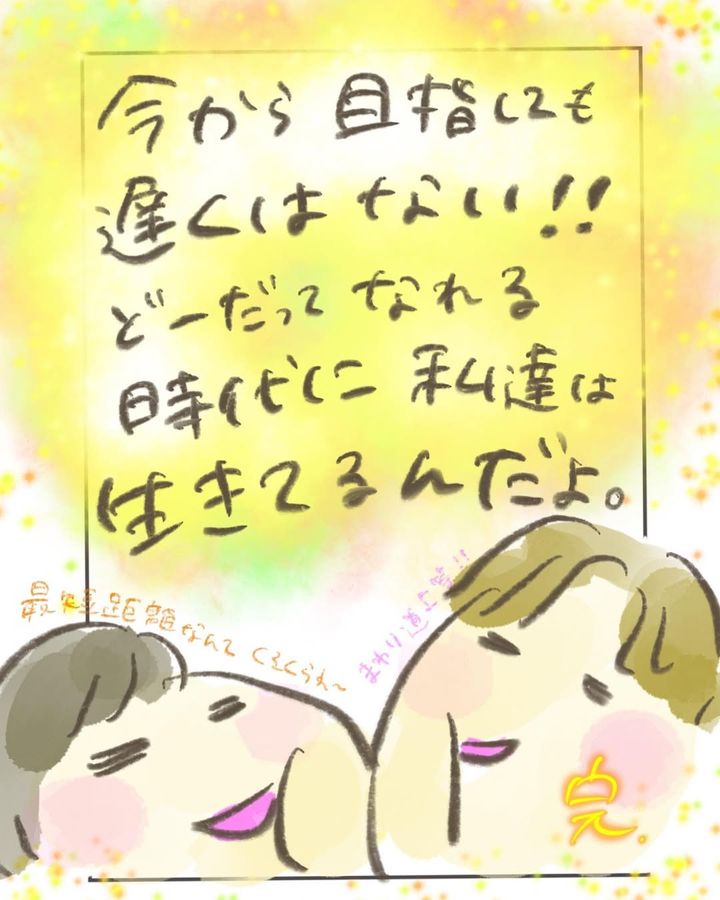 今から目指しても
遅くはない!!
どーだってなれる
時代に私達は
生きてるんだよ。
最短距離なんてくそくらえ〜
まわり道上等!!
完。